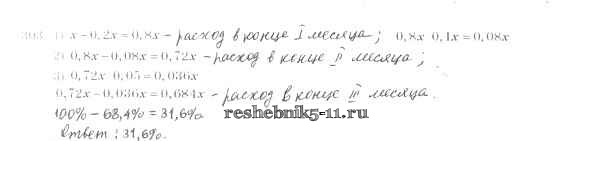 303. 1) x – 0,2x = 0,8x – расход в конце I месяца; 0,8x 0,1x = 0,08x
2) 0,8x – 0,08x = 0,72x – расход в конце II месяца;
3) 0,72x 0,05 = 0,036x
0,72x – 0,036x = 0,684x – расход в конце III месяца.
100% – 68,4% = 31,6%
Ответ: 31,6%.
reshebnik5-11.ru